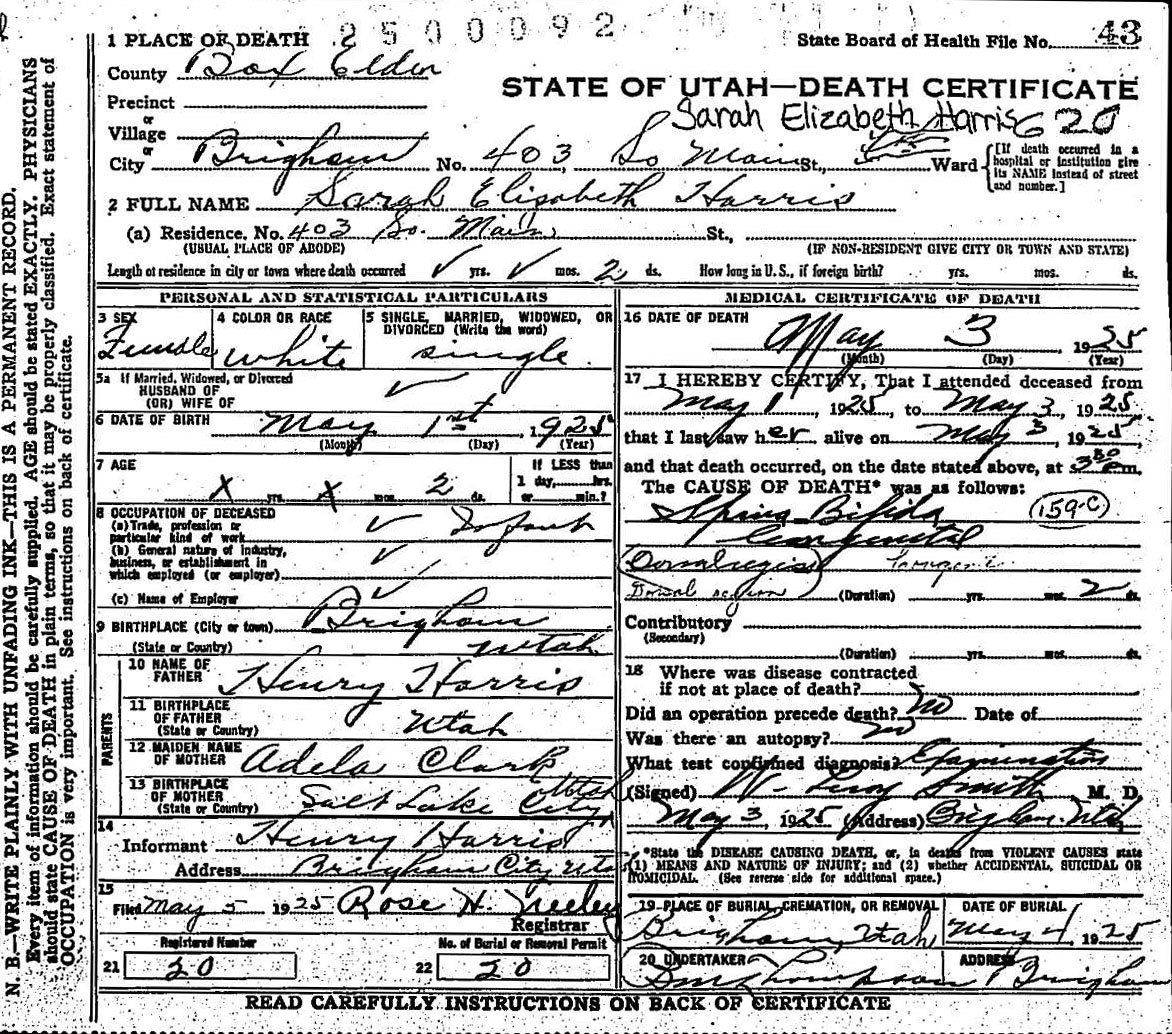 2500092
1 PLACE OF DEATH
State Board of Health File No. 43
County Box Elder
STATE OF UTAH—DEATH CERTIFICATE
Precinct
or
Sarah Elizabeth Harris 620
Village
or
City Brigham No. 403 So Main St., Ward
[If death occurred in a hospital or institution give its NAME instead of street and number.]
2 FULL NAME Sarah Elizabeth Harris
(a) Residence, No. 403 So. Main St.,
(USUAL PLACE OF ABODE) (IF NON-RESIDENT GIVE CITY OR TOWN AND STATE)
Length of residence in city or town where death occurred ✓ yrs. ✓ mos. 2 ds. How long in U. S., if foreign birth? yrs. mos. ds.
PERSONAL AND STATISTICAL PARTICULARS
3 SEX
Female
4 COLOR OR RACE
White
5 SINGLE, MARRIED, WIDOWED, OR
DIVORCED (Write the word)
single
5a If Married, Widowed, or Divorced
HUSBAND OF
(OR) WIFE OF ✓
6 DATE OF BIRTH May 1st 1925
(Month) (Day) (Year)
7 AGE
X yrs. X mos. 2 ds.
If LESS than
1 day, hrs.
or min.?
8 OCCUPATION OF DECEASED
(a) Trade, profession or
particular kind of work ✓ Infant
(b) General nature of industry,
business, or establishment in
which employed (or employer) ✓
(c) Name of Employer ✓
9 BIRTHPLACE (City or town) Brigham
(State or Country) Utah
PARENTS
10 NAME OF
FATHER Henry Harris
11 BIRTHPLACE
OF FATHER
(State or Country) Utah
12 MAIDEN NAME
OF MOTHER Adela Clark
13 BIRTHPLACE
OF MOTHER
(State or Country) Salt Lake City Utah
14
Informant Henry Harris
Address Brigham City Uta
15
Filed May 5 1925 Rose H. Neeley
Registrar
Registered Number
21 20
No. of Burial or Removal Permit
22 20
MEDICAL CERTIFICATE OF DEATH
16 DATE OF DEATH
May 3 1925
(Month) (Day) (Year)
17 I HEREBY CERTIFY, That I attended deceased from
May 1, 1925, to May 3, 1925
that I last saw her alive on May 3, 1925
and that death occurred, on the date stated above, at m.
The CAUSE OF DEATH* was as follows:
Spina Bifida (159-C)
Congenital
(Dorsal region)
Dorsal region (Duration) yrs. mos. 2 ds.
Contributory
(Secondary)
(Duration) yrs. mos. ds.
18 Where was disease contracted
if not at place of death?
Did an operation precede death? no Date of
Was there an autopsy? no
What test confirmed diagnosis? Examination
(Signed) W. Leroy Smith M. D.
May 3, 1925 (Address) Brigham, Uta
*State the DISEASE CAUSING DEATH, or, in deaths from VIOLENT CAUSES state
(1) MEANS AND NATURE OF INJURY; and (2) whether ACCIDENTAL, SUICIDAL OR
HOMICIDAL. (See reverse side for additional space.)
19 PLACE OF BURIAL, CREMATION, OR REMOVAL
Brigham, Utah
DATE OF BURIAL
May 4 1925
20 UNDERTAKER
Thompson
ADDRESS
Brigham
READ CAREFULLY INSTRUCTIONS ON BACK OF CERTIFICATE
N. B.—WRITE PLAINLY WITH UNFADING INK—THIS IS A PERMANENT RECORD.
Every item of information should be carefully supplied. AGE should be stated EXACTLY. PHYSICIANS
should state CAUSE OF DEATH in plain terms, so that it may be properly classified. Exact statement of
OCCUPATION is very important. See instructions on back of certificate.